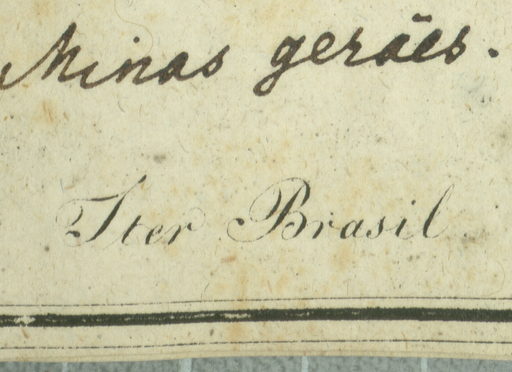 Minas gerães.
Iter Brasil